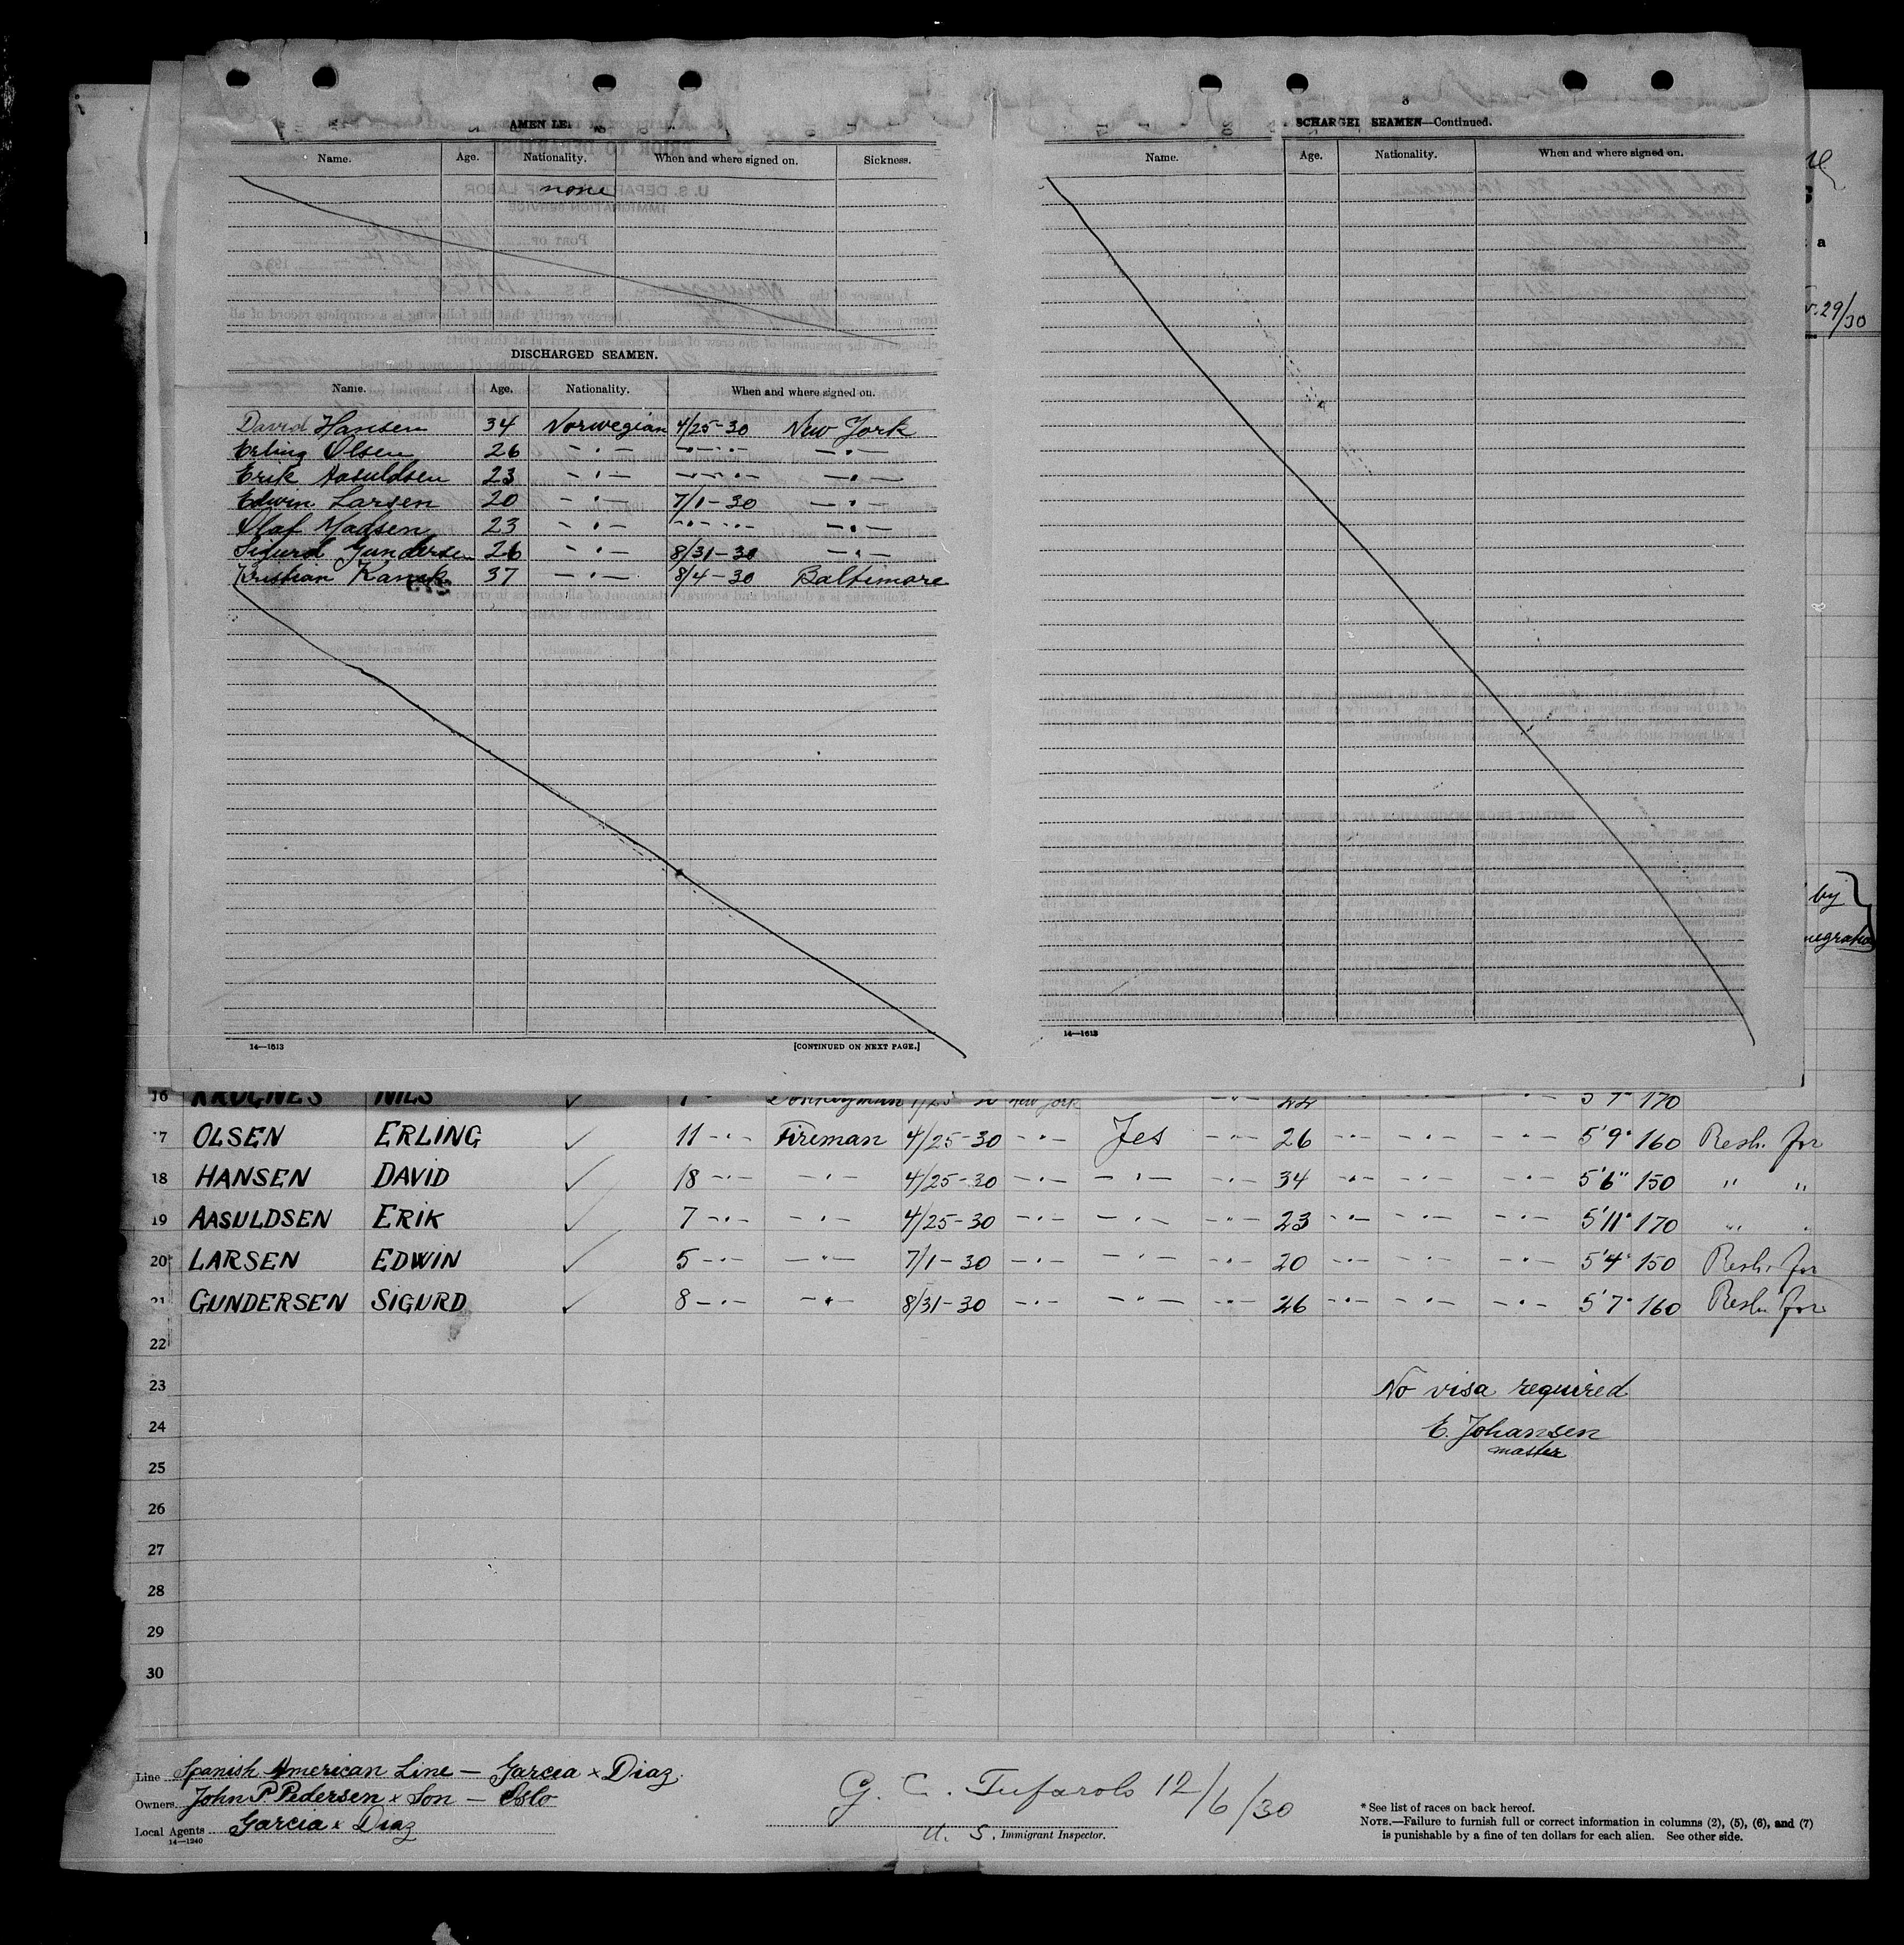 AMEN LE
Name. Age. Nationality. When and where signed on. Sickness.
none
DISCHARGED SEAMEN.
Name. Age. Nationality. When and where signed on.
David Hansen 34 Norwegian 4/25-30 New York
Erling Olsen 26 -"- -"- -"-
Erik Aasuldsen 23 -"- -"- -"-
Edwin Larsen 20 -"- 7/1-30 -"-
Olaf Madsen 23 -"- -"- -"-
Sigurd Gundersen 26 -"- 8/31-30 -"-
Kristian 37 -"- 8/4-30 Baltimore
14—1613 [CONTINUED ON NEXT PAGE.]
3
SCHARGE SEAMEN—Continued.
Name. Age. Nationality. When and where signed on.
14—1613
a
29/30
by
16 KROGNES NILS Donkeyman New York 22 170
17 OLSEN ERLING ✓ 11 -"- Fireman 4/25-30 -"- Yes -"- 26 -"- -"- -"- 5'9" 160 for
18 HANSEN DAVID ✓ 18 -"- -"- 4/25-30 -"- -"- -"- 34 -"- -"- -"- 5'6" 150 " "
19 AASULDSEN ERIK ✓ 7 -"- -"- 4/25-30 -"- -"- -"- 23 -"- -"- -"- 5'11" 170 " "
20 LARSEN EDWIN ✓ 5 -"- -"- 7/1-30 -"- -"- -"- 20 -"- -"- -"- 5'4" 150 for
21 GUNDERSEN SIGURD ✓ 8 -"- -"- 8/31-30 -"- -"- -"- 26 -"- -"- -"- 5'7" 160 for
22
23 No visa required
24 E. Johansen
master
25
26
27
28
29
30
Line Spanish American Line - Garcia & Diaz.
Owners John P Pedersen & Son - Oslo
Local Agents Garcia & Diaz
14—1240
G. C. Tufarolo 12/6/30
U. S. Immigrant Inspector.
* See list of races on back hereof.
NOTE.—Failure to furnish full or correct information in columns (2), (5), (6), and (7)
is punishable by a fine of ten dollars for each alien. See other side.